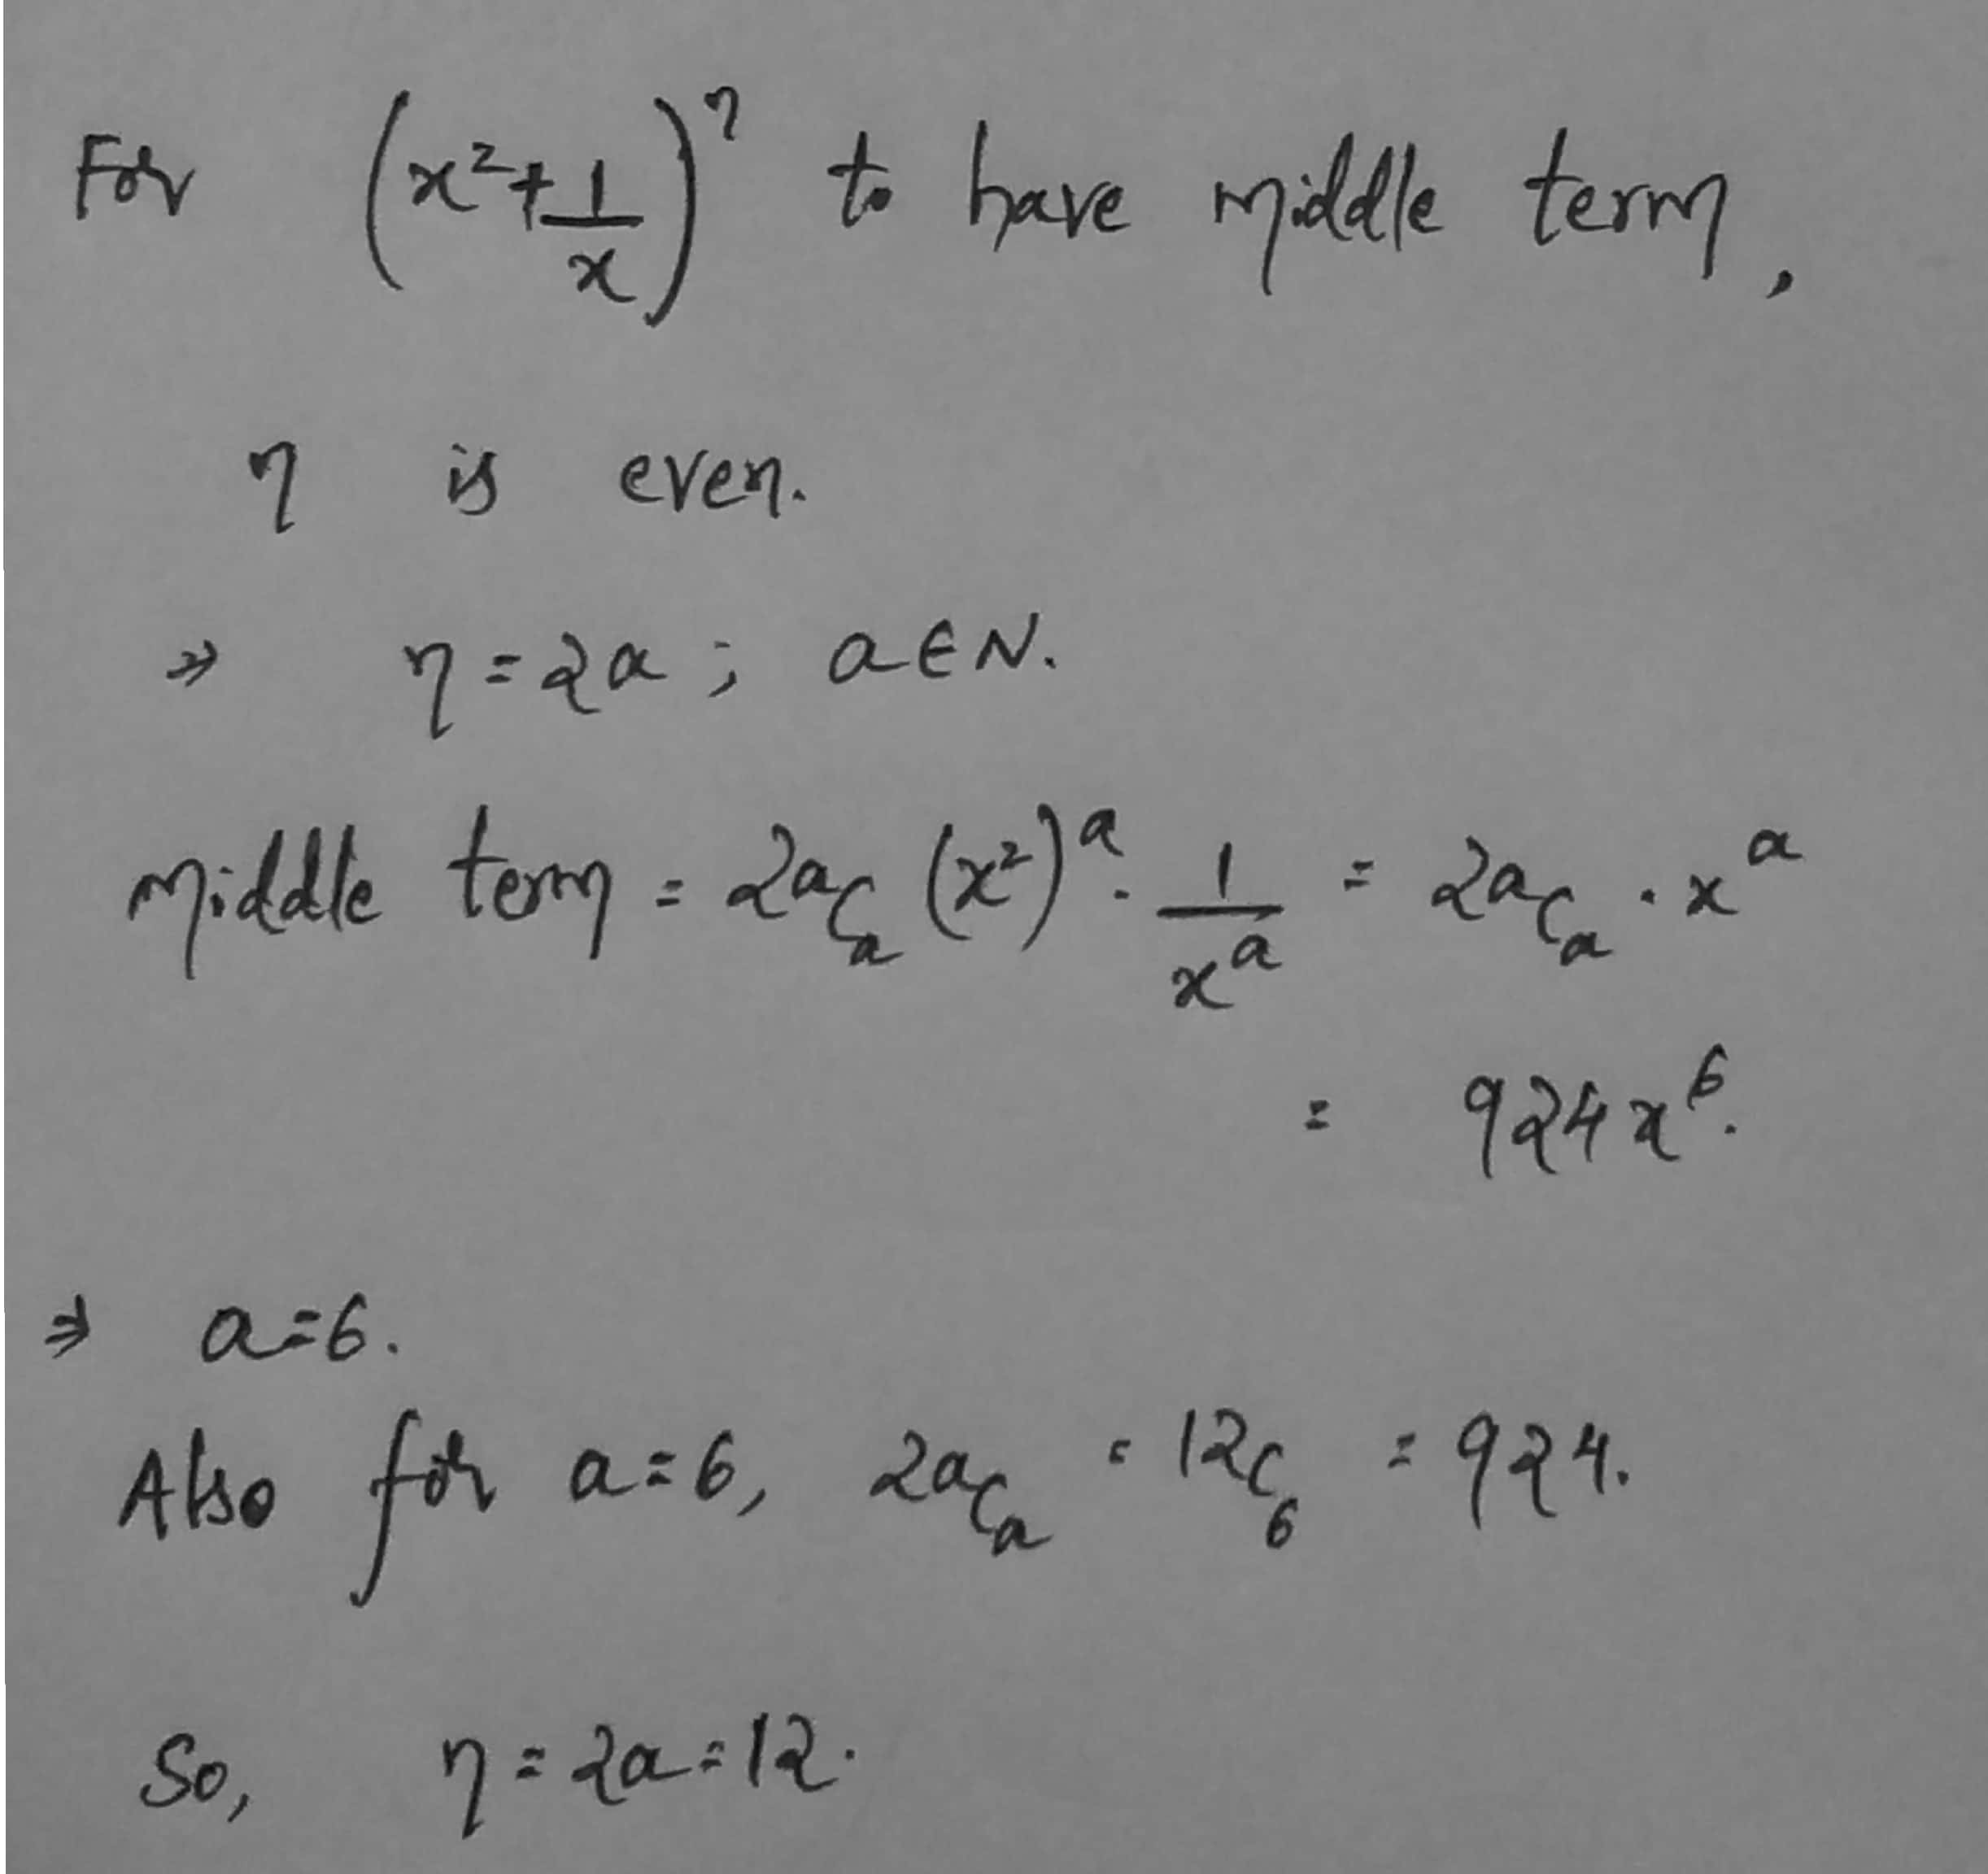 For (x² + 1/x)ⁿ to have middle term,
n is even.
⇒ n = 2a ; a ∈ N.
Middle term = 2aCₐ (x²)ᵃ · 1/xᵃ = 2aCₐ · xᵃ
= 924x⁶.
⇒ a = 6.
Also for a = 6, 2aCₐ = 12C₆ = 924.
So, n = 2a = 12.